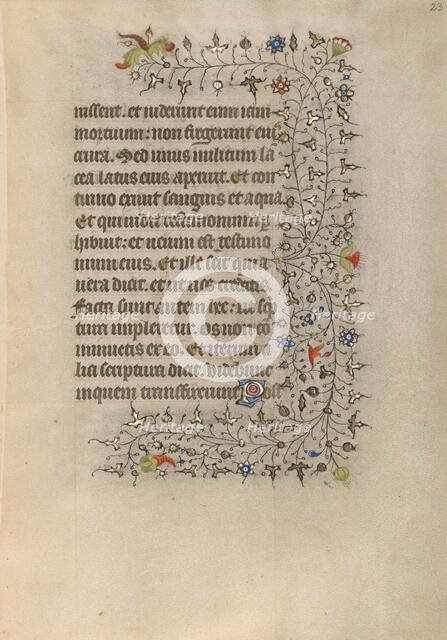 23
nissent. et viderunt eum iam
mortuum: non fregerunt eius
crura. Sed unus militum la
cea latus eius aperuit. Et con
tinuo exivit sanguis et aqua.
Et qui vidit testimonium per
hibuit: et verum est testimo
nium eius. Et ille scit quia
vera dicit. et ut vos credatis.
Facta sunt autem hec: ut scrip
tura impleretur. Os non co
minuetis ex eo. Et iterum a
lia scriptura dicit. Videbunt
in quem transfixerunt. Post
heritage-images
heritage-images
heritage-images
heritage-images